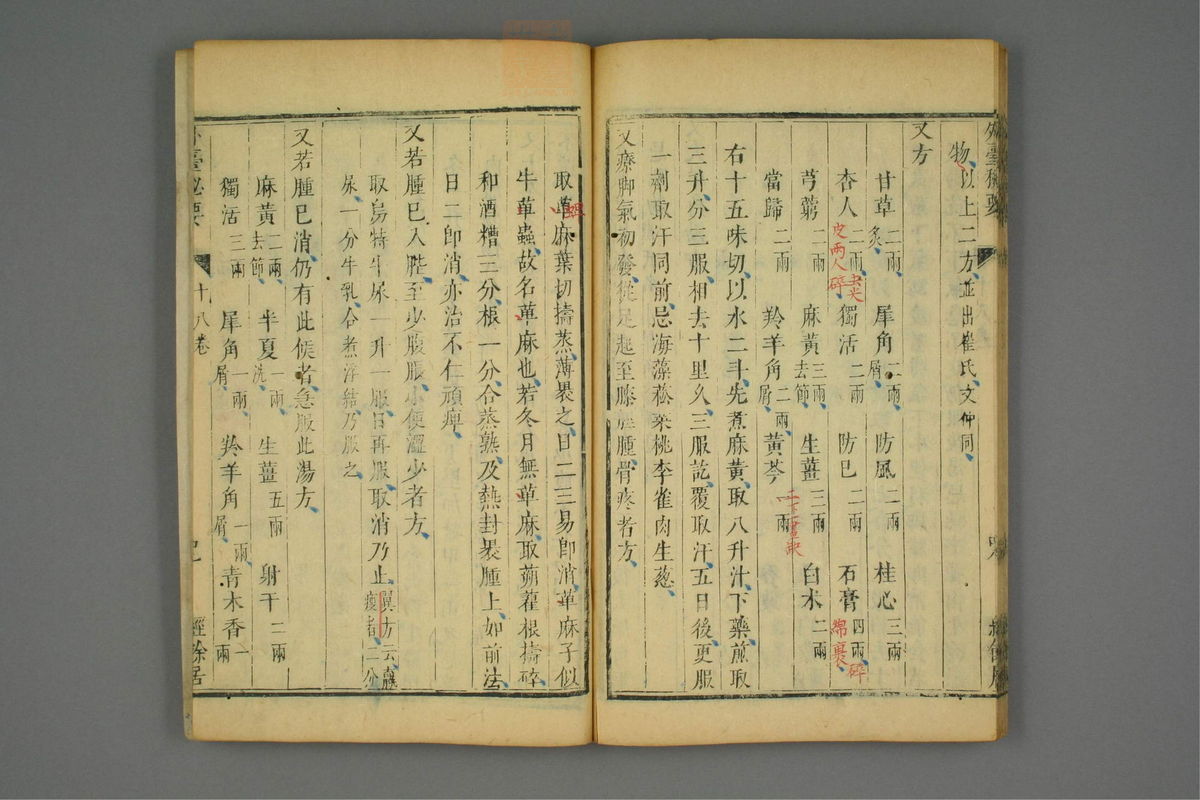 外臺秘要
物以上二方並出崔氏文仲同
又方
甘草二兩炙 犀角二兩屑 防風二兩 桂心三兩
杏人二兩去尖皮兩人碎 獨活二兩 防巳二兩 石膏四兩碎綿裹
芎藭二兩 麻黃三兩去節 生薑三兩 白朮二兩
當歸二兩 羚羊角二兩屑 黃芩一兩
右十五味切以水二斗先煮麻黃取八升汁下藥煎取
三升分三服相去十里久三服訖覆取汗五日後更服
一劑取汗同前忌海藻菘菜桃李雀肉生葱
又療脚氣初發從足起至膝脛腫骨疼者方
取萆麻葉切擣蒸薄裹之日二三易即消萆麻子似
牛萆蟲故名萆麻也若冬月無萆麻取蒴藋根擣碎
和酒糟三分根一分合蒸熟及熱封裹腫上如前法
日二即消亦治不仁頑痺
又若腫巳入䏶至少腹脹小便澀少者方
取烏特牛尿一升一服日再服取消乃止翼方云羸瘦者二分
尿一分牛乳合煮浮結乃服之
又若腫巳消仍有此候者急服此湯方
麻黃二兩去節 半夏一兩洗 生薑五兩 射干二兩
獨活三兩 犀角一兩屑 羚羊角一兩屑 青木香一兩
外臺秘要 十八卷 經餘居